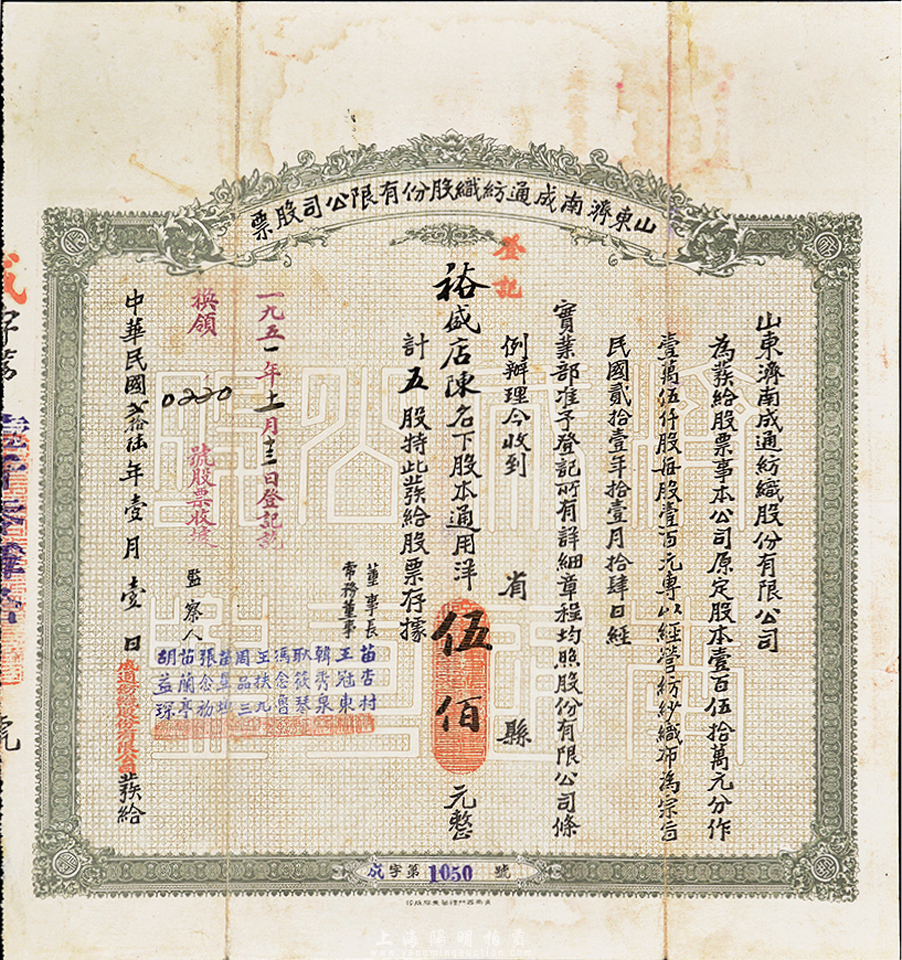 山東濟南成通紡織股份有限公司股票
登記
山東濟南成通紡織股份有限公司
為蕟給股票事本公司原定股本壹百伍拾萬元分作
壹萬伍仟股每股壹百元專以經營紡紗織布為宗旨
民國貳拾壹年拾壹月拾肆日經
實業部准予登記所有詳細章程均照股份有限公司條
例辦理今收到 省 縣
裕盛店陳名下股本通用洋伍佰元整
計五股特此蕟給股票存據
董事長
常務董事
苗杏村
王冠東
韓秀泉
耿筱琴
馮念魯
王扶九
周品三
苗星垣
張念初
苗蘭亭
胡益琛
監察人
一九五一年十一月十三日登記訖
換領 0220 號股票收據
中華民國貳拾陸年壹月壹日 成通紡織股份有限公司 蕟給
成字第1050號
上海陽明拍賣